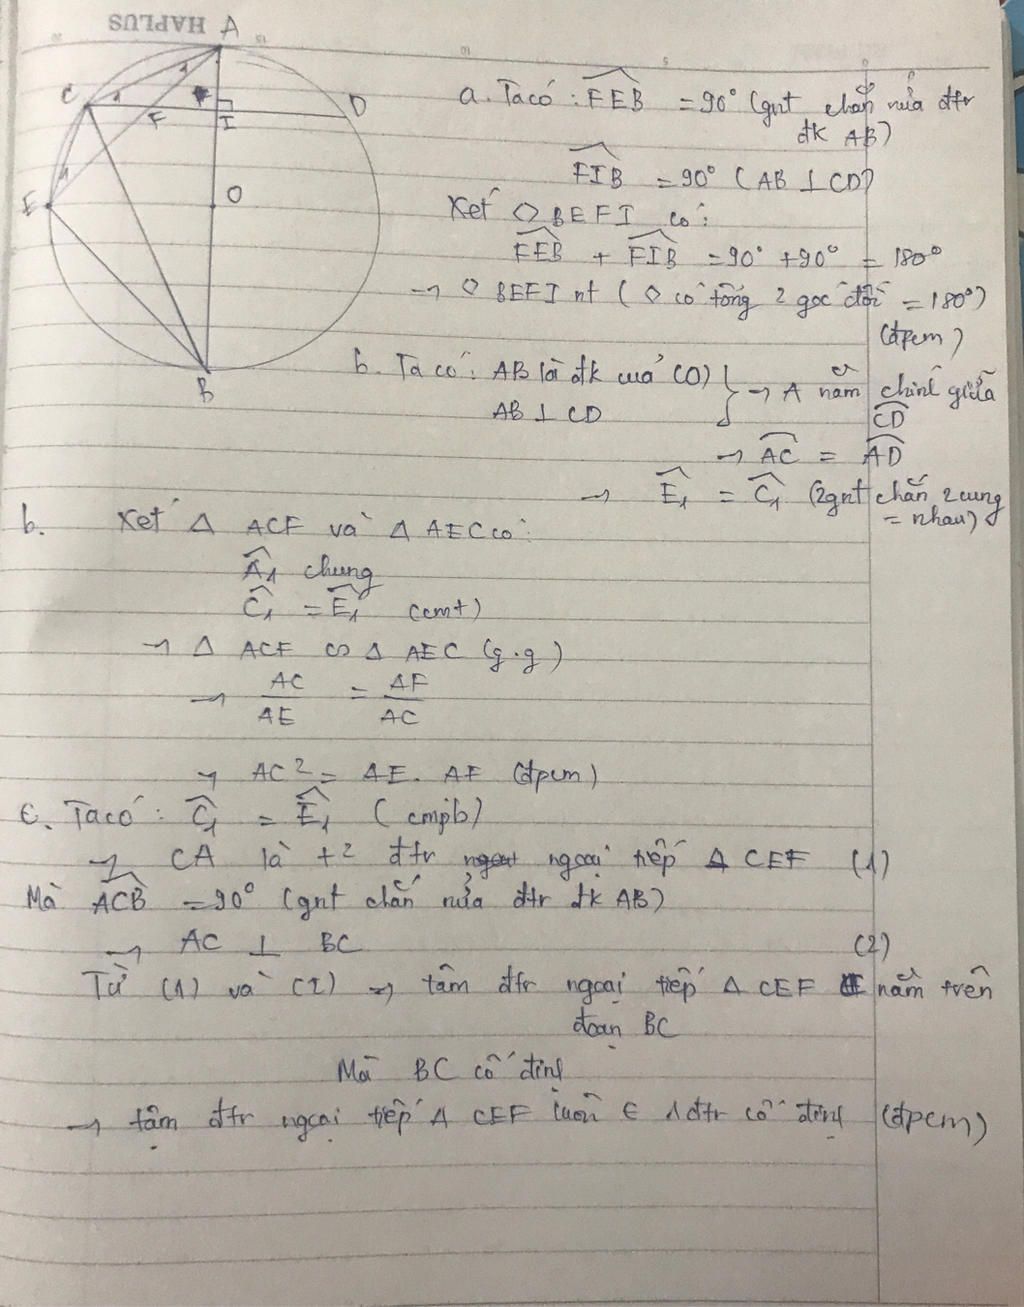 HAPLUS
A
C
1
1
F
I
D
E
1
O
B
a. Ta có : FEB = 90° (gnt chắn nửa đtr
đk AB)
FIB = 90° (AB ⊥ CD)
Xét ◇ BEFI có:
FEB + FIB = 90° + 90° = 180°
→ ◇ BEFI nt ( ◇ có tổng 2 góc đối = 180°)
(đpcm)
b. Ta có : AB là đk của (O) } → A nằm chính giữa
AB ⊥ CD CD
→ AC = AD
→ E1 = C1 (2gnt chắn 2 cung
= nhau)
b. Xét Δ ACF và Δ AEC có:
A1 chung
C1 = E1 (cmt)
→ Δ ACF ∽ Δ AEC (g.g)
→ AC/AE = AF/AC
→ AC² = AE. AF (đpcm)
c. Ta có : C1 = E1 ( cmpb)
→ CA là t² đtr ngoại tiếp Δ CEF (1)
Mà ACB = 90° (gnt chắn nửa đtr đk AB)
→ AC ⊥ BC (2)
Từ (1) và (2) → tâm đtr ngoại tiếp Δ CEF nằm trên
đoạn BC
Mà BC cố định
→ tâm đtr ngoại tiếp Δ CEF luôn ∈ 1 đtr cố định (đpcm)